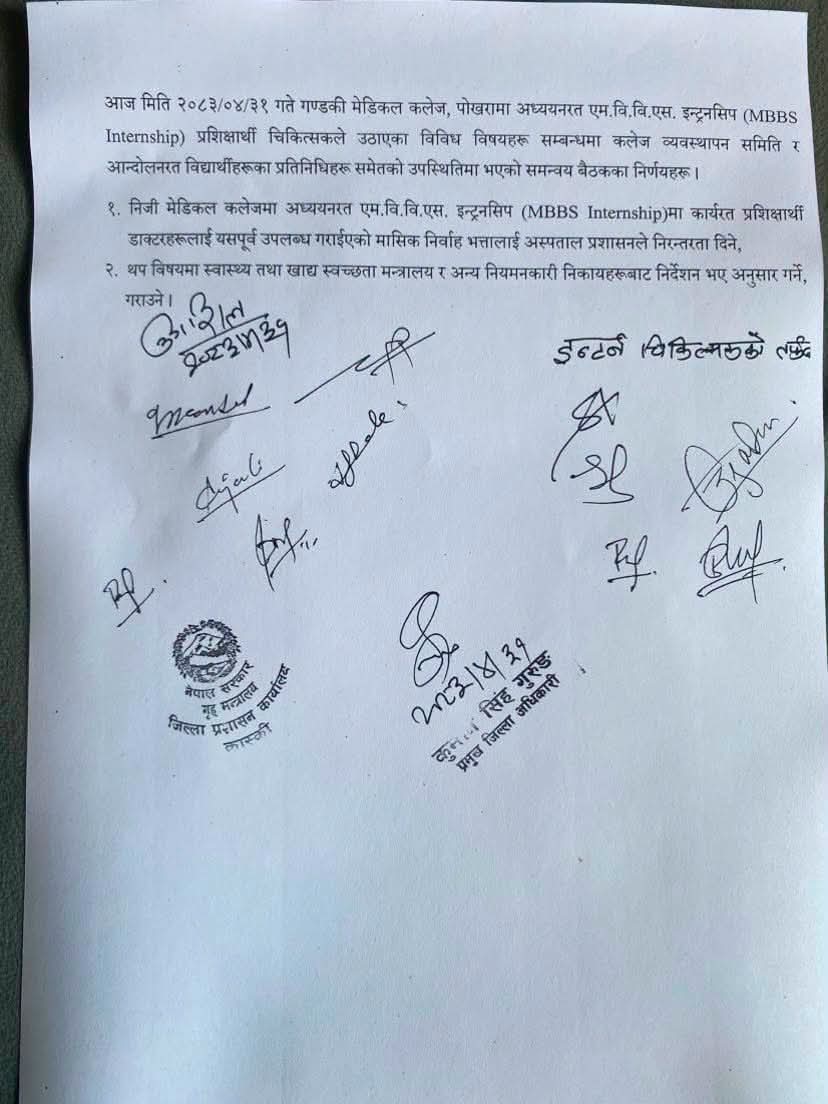 आज मिति २०८३/०४/३१ गते गण्डकी मेडिकल कलेज, पोखरामा अध्ययनरत एम.वि.वि.एस. इन्ट्रनसिप (MBBS
Internship) प्रशिक्षार्थी चिकित्सकले उठाएका विविध विषयहरू सम्बन्धमा कलेज व्यवस्थापन समिति र
आन्दोलनरत विद्यार्थीहरूका प्रतिनिधिहरू समेतको उपस्थितिमा भएको समन्वय बैठकका निर्णयहरू।
१. निजी मेडिकल कलेजमा अध्ययनरत एम.वि.वि.एस. इन्ट्रनसिप (MBBS Internship)मा कार्यरत प्रशिक्षार्थी
डाक्टरहरूलाई यसपूर्व उपलब्ध गराईएको मासिक निर्वाह भत्तालाई अस्पताल प्रशासनले निरन्तरता दिने,
२. थप विषयमा स्वास्थ्य तथा खाद्य स्वच्छता मन्त्रालय र अन्य नियमनकारी निकायहरूबाट निर्देशन भए अनुसार गर्ने,
गराउने।
२०८३/४/३१
इन्टर्न चिकित्सकको तर्फबाट
नेपाल सरकार
गृह मन्त्रालय
जिल्ला प्रशासन कार्यालय
कास्की
२०८३/४/३१
सिंह गुरुङ
प्रमुख जिल्ला अधिकारी